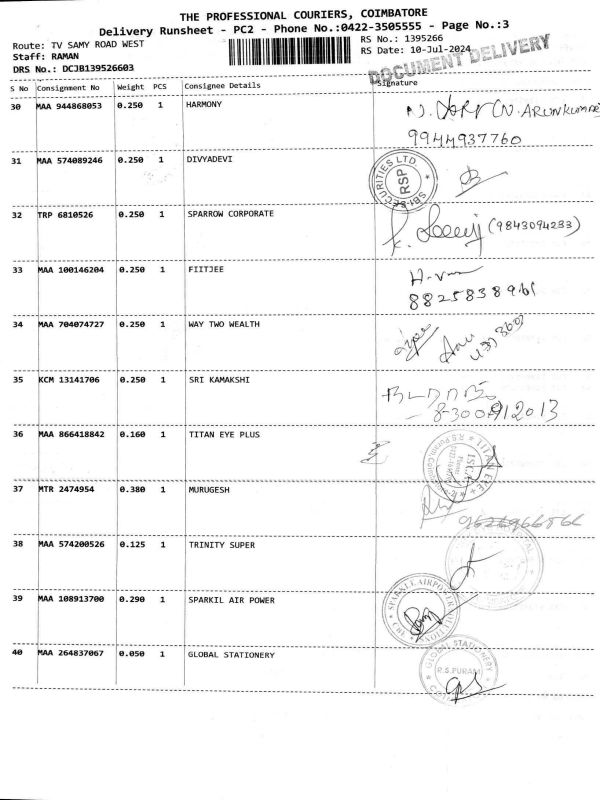 THE PROFESSIONAL COURIERS, COIMBATORE
Delivery Runsheet - PC2 - Phone No.:0422-3505555 - Page No.:3
Route: TV SAMY ROAD WEST
RS No.: 1395266
Staff: RAMAN
RS Date: 10-Jul-2024
DRS No.: DCJB139526603
DOCUMENT DELIVERY
S No Consignment No Weight PCS Consignee Details Signature
30 MAA 944868053 0.250 1 HARMONY
(N. ARUNKUMAR)
9944937760
31 MAA 574089246 0.250 1 DIVYADEVI
SBI-SECURITIES LTD.
RSP
32 TRP 6810526 0.250 1 SPARROW CORPORATE
(9843094233)
33 MAA 100146204 0.250 1 FIITJEE
8825838961
34 MAA 704074727 0.250 1 WAY TWO WEALTH
35 KCM 13141706 0.250 1 SRI KAMAKSHI
36 MAA 866418842 0.160 1 TITAN EYE PLUS
TITAN EYE
37 MTR 2474954 0.380 1 MURUGESH
38 MAA 574200526 0.125 1 TRINITY SUPER
39 MAA 108913700 0.290 1 SPARKIL AIR POWER
40 MAA 264837067 0.050 1 GLOBAL STATIONERY
GLOBAL STATIONERY
R.S.PURAM